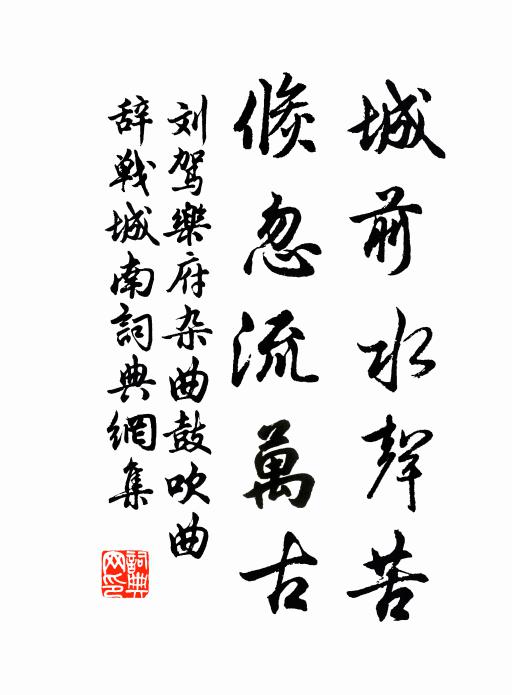 城前水聲苦
倏忽流萬古
刘驾樂府杂曲鼓吹曲
辞戰城南詞典網集
詞典网印